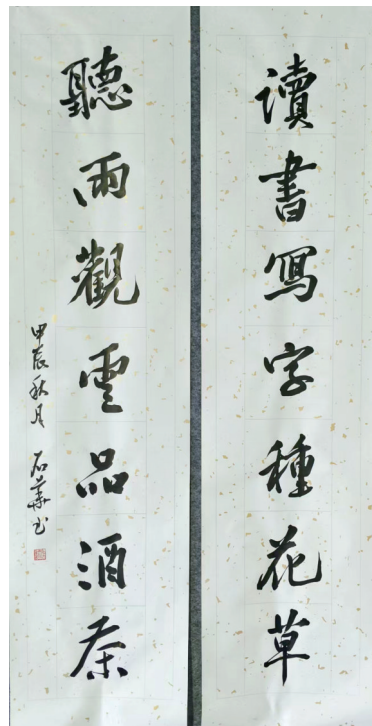 讀書寫字種花草
聽雨觀雲品酒茶
甲辰秋月 石華書